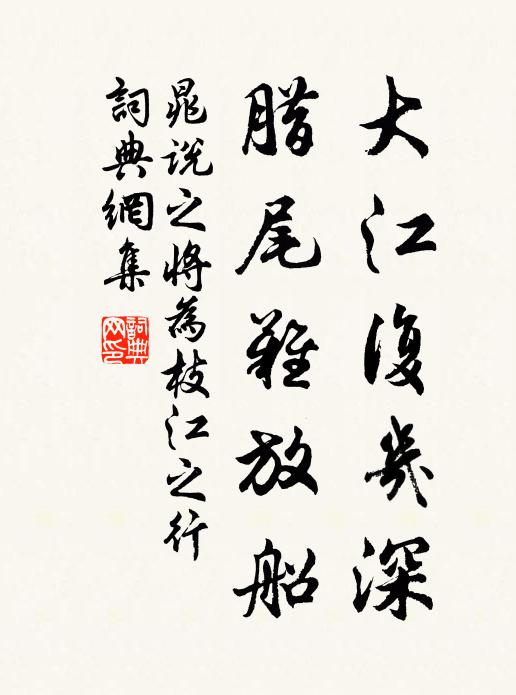 大江復幾深
腊尾難放船
晁說之將為枝江之行
詞典網集
詞典网印